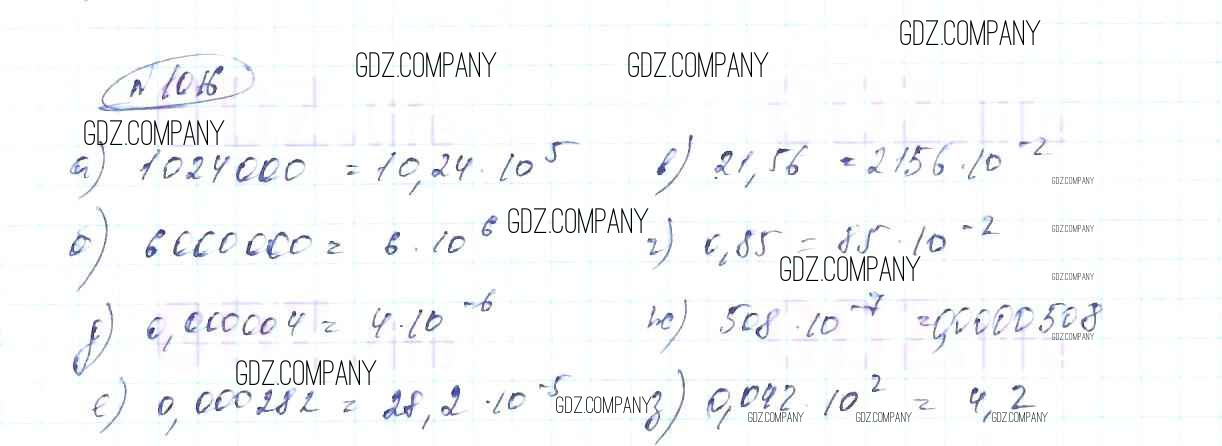 GDZ.COMPANY
GDZ.COMPANY GDZ.COMPANY
№ 1016
GDZ.COMPANY
а) 1024000 = 10,24 · 10^5 в) 21,56 = 2156 · 10^-2
GDZ.COMPANY
б) 6000000 = 6 · 10^6 GDZ.COMPANY г) 0,85 = 85 · 10^-2
GDZ.COMPANY
GDZ.COMPANY GDZ.COMPANY
д) 0,000004 = 4 · 10^-6 ж) 508 · 10^-7 = 0,0000508
GDZ.COMPANY
GDZ.COMPANY
е) 0,000282 = 28,2 · 10^-5 GDZ.COMPANY з) 0,042 · 10^2 = 4,2
GDZ.COMPANY GDZ.COMPANY GDZ.COMPANY